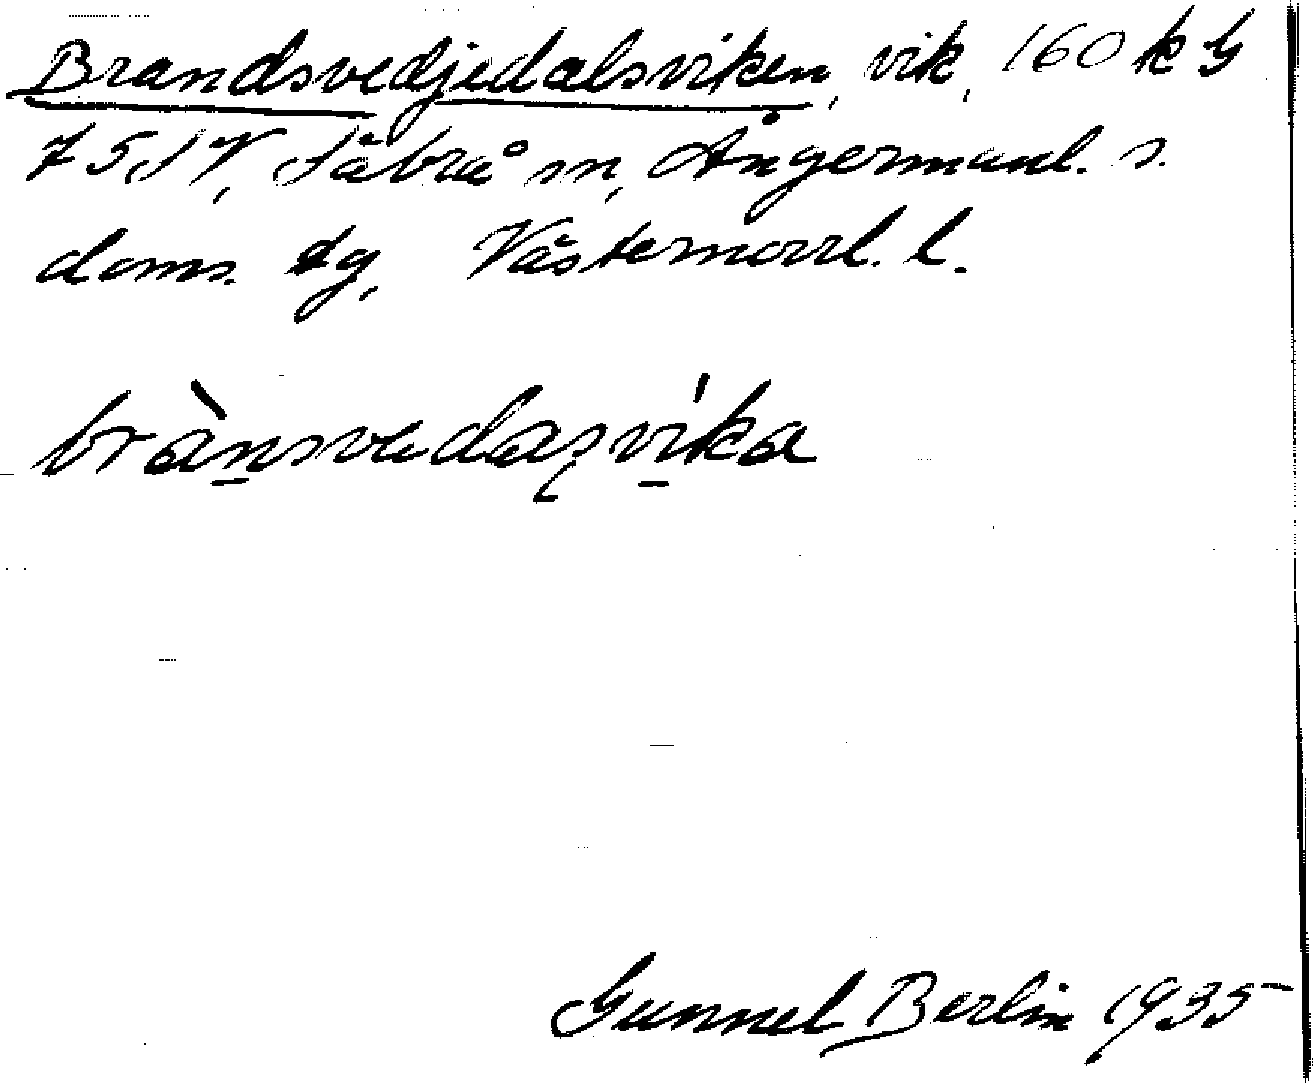 Brandsvedjedalsviken, vik, 160 k G
75 SV, Säbrå sn, Ångermanl. s.
doms. tg, Västernorrl. l.
brànsvedasvíka
Gunnel Berlin 1935